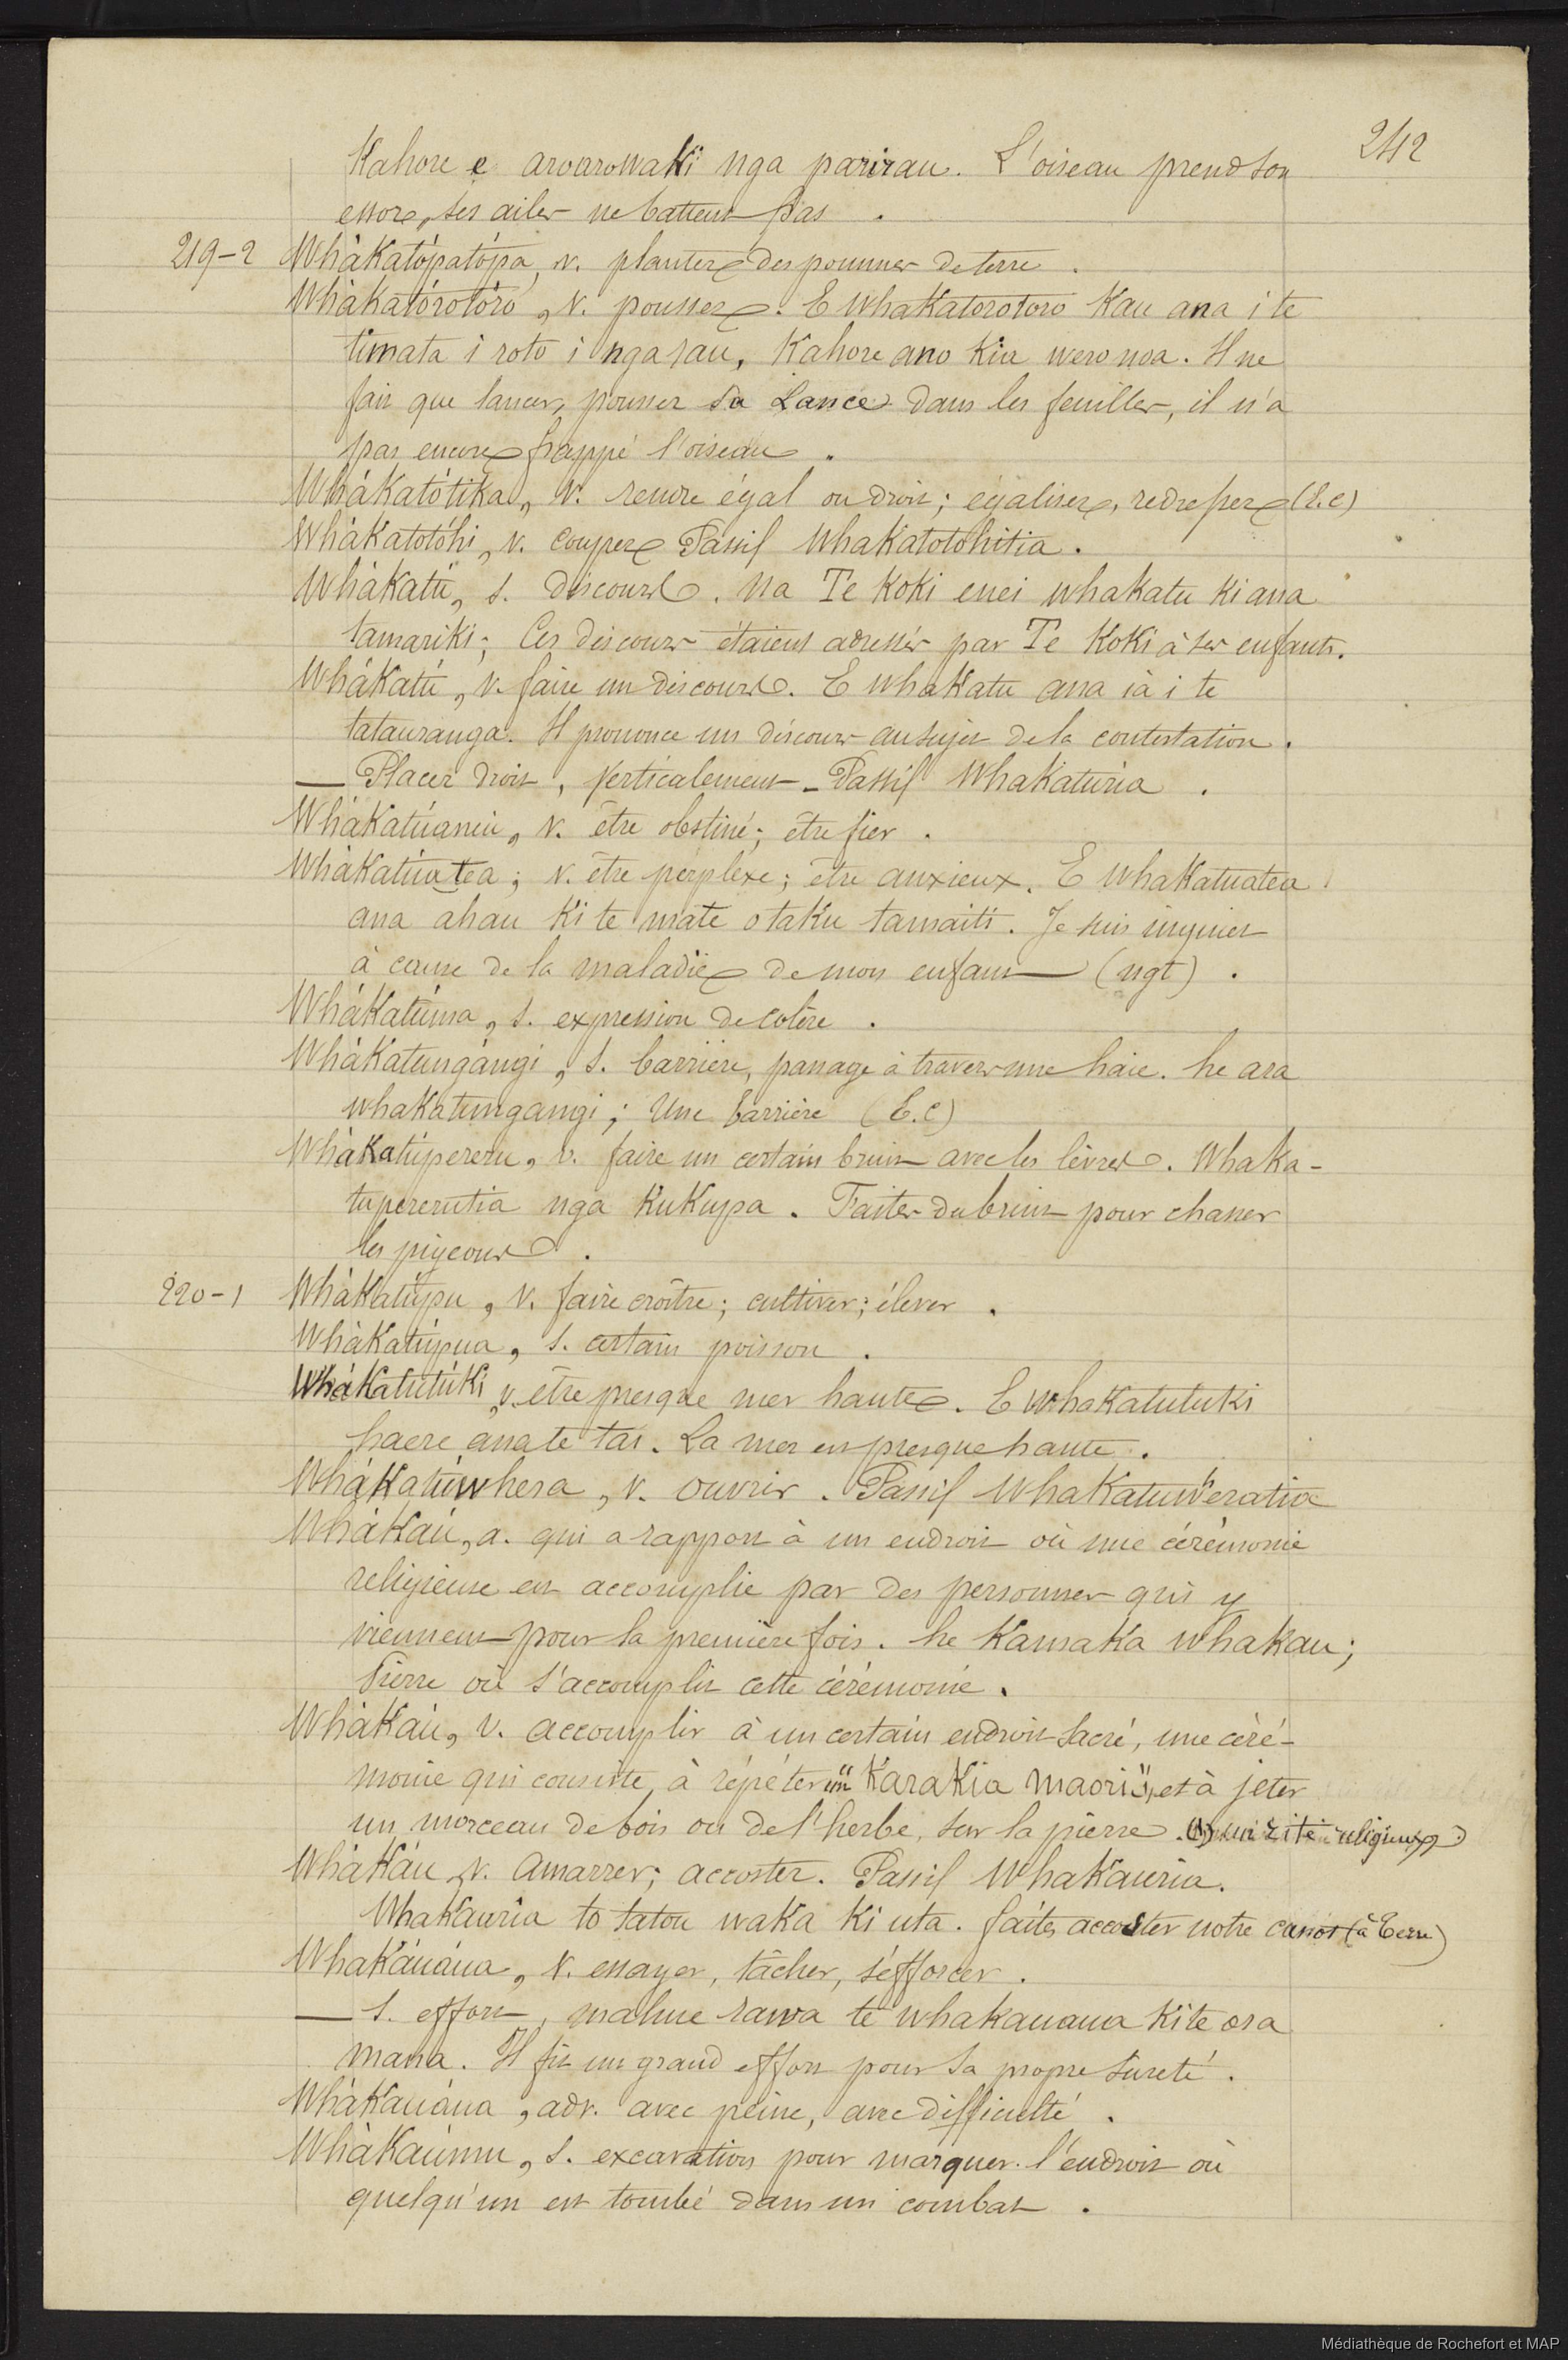 242
Kahore e aroarowaki nga parirau. L'oiseau prend son
essor, ses ailes ne battent pas.
219-2 Whàkatópatópa, v. planter des pommes de terre.
Whàkatórotóro, v. pousser. E whakatorotoro kau ana i te
timata i roto i nga rau, kahore ano kia wero noa. Il ne
fait que lancer, pousser sa Lance dans les feuilles, il n'a
pas encore frappé l'oiseau.
Whàkatótika, v. rendre égal ou droit; égaliser, redresser (E.C)
Whàkatotóhi, v. couper Passif Whakatotohitia.
Whàkatú, s. discours. Na Te Koki enei whakatu ki ana
tamariki; Ces discours étaient adressés par Te Koki à ses enfants.
Whàkatú, v. faire un discours. E whakatu ana ia i te
tatauranga. Il prononce un discours au sujet de la contestation.
— Placer droit, verticalement - Passif Whakaturia.
Whàkatúaneu, v. être obstiné; être fier.
Whàkatúatea; v. être perplexe; être anxieux. E whakatuatea
ana ahau ki te mate o taku tamaiti. Je suis inquiet
à cause de la maladie de mon enfant (ngt).
Whàkatúma, s. expression de colère.
Whàkatungángi, s. barrière, passage à travers une haie. he ara
whakatungangi; Une barrière (E.C)
Whàkatúpereru, v. faire un certain bruit avec les lèvres. Whaka-
tupererutia nga kukupa. Faites du bruit pour chasser
les pigeons.
220-1 Whàkatúpu, v. faire croître; cultiver; élever.
Whàkatúpua, s. certain poisson.
Whàkatutúki, v. être presque mer haute. E whakatutuki
haere ana te tai. La mer est presque haute.
Whàkatúwhera, v. ouvrir. Passif Whakatuwheratia
Whàkaú, a. qui a rapport à un endroit où une cérémonie
religieuse est accomplie par des personnes qui y
viennent pour la première fois. he kamaka whakau;
Pierre où s'accomplit cette cérémonie.
Whàkaú, v. accomplir à un certain endroit sacré, une céré-
monie qui consiste, à répéter un "Karakia maori", et à jeter
un morceau de bois ou de l'herbe, sur la pierre. (1) un rite religieux
Whàkáu, v. amarrer; accoster. Passif Whakauria.
Whakauria to tatou waka ki uta. faites accoster notre canot (à terre)
Whakáuáua, v. essayer, tâcher, s'éfforcer.
— s. effort, mahue rawa te whakauaua ki te ora
mana. Il fit un grand effort pour sa propre sureté.
Whàkauáua, adv. avec peine, avec difficulté.
Whàkaúmu, s. excavation pour marquer l'endroit où
quelqu'un est tombé dans un combat.
Médiathèque de Rochefort et MAP